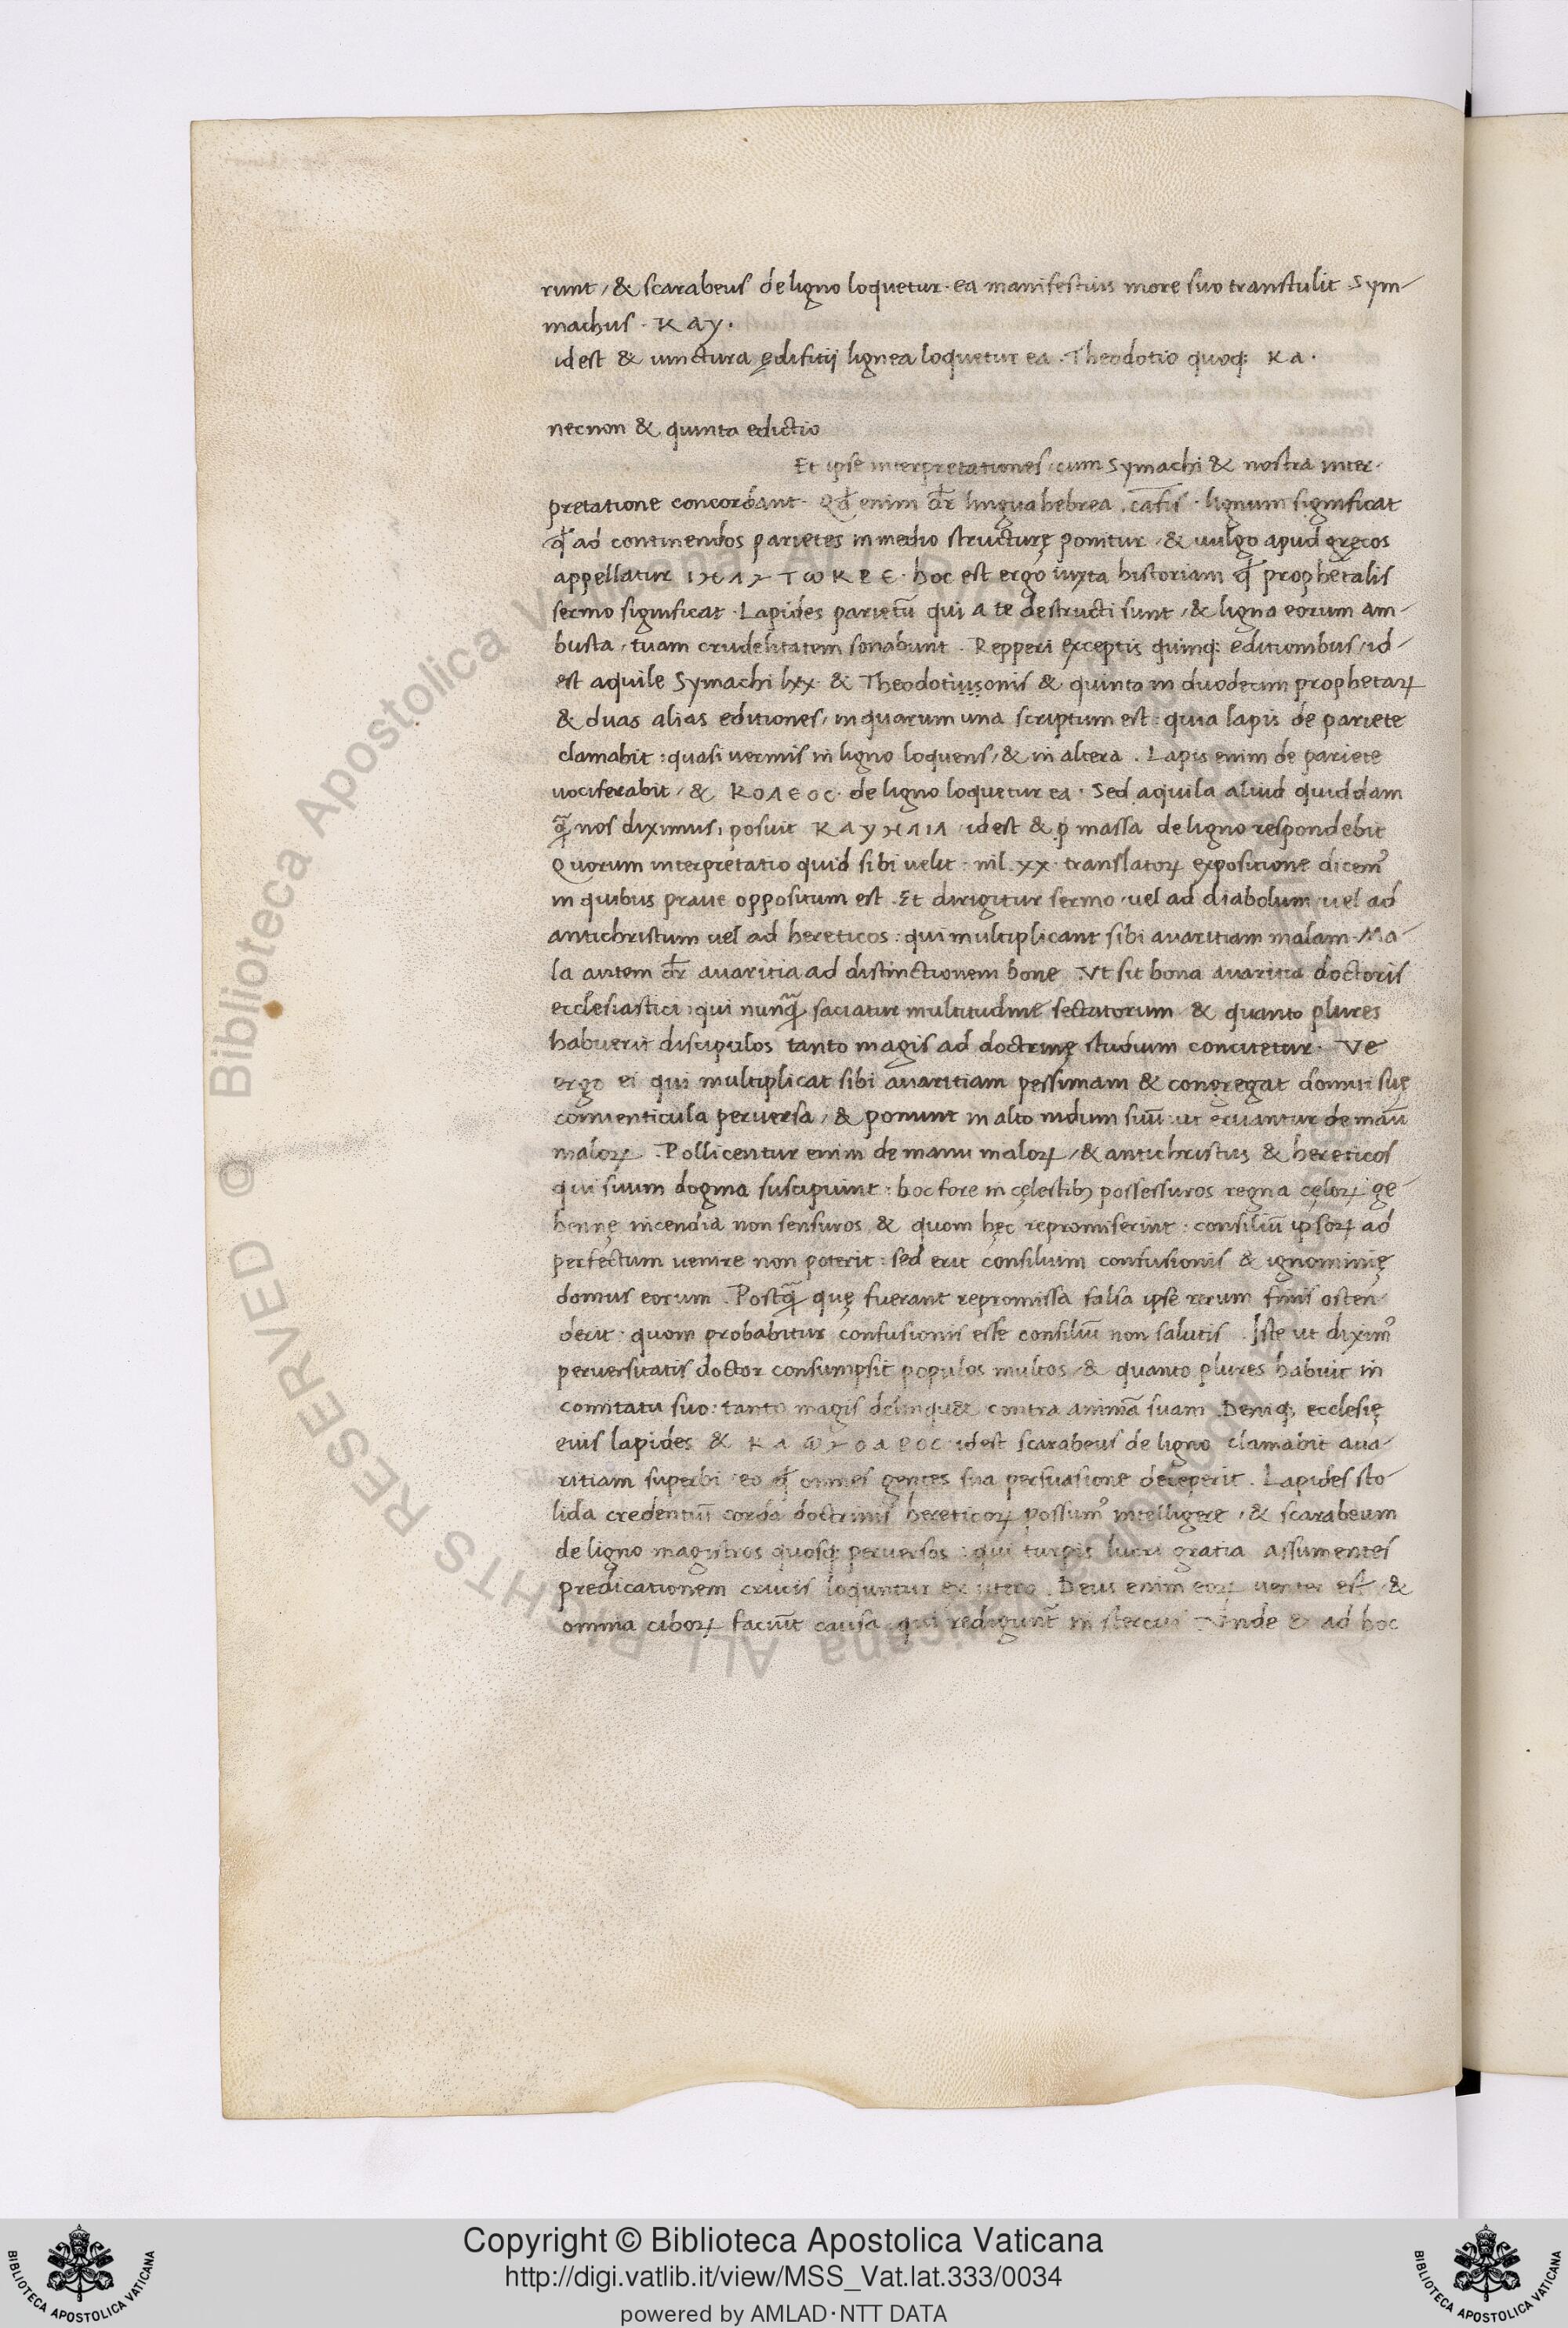 runt, & scarabeus de ligno loquetur · ea manifestius more suo transtulit Sym-
machus · Kay.
id est & iunctura ędifitij lignea loquetur ea · Theodotio quoq; Ka.
necnon & quinta edictio
Et ipse interpretationes, cum Symachi & nostra inter-
pretatione concordant · Qđ enim dr̄ lingua hebrea · cafis · lignum significat
qđ ad continendos parietes in medio structurę ponitur, & uulgo apud gręcos
appellatur hoc est ergo iuxta historiam qđ prophetalis
sermo significat · Lapides parietū qui a te destructi sunt, & ligna eorum am-
busta, tuam crudelitatem sonabunt . Repperi exceptis quinq; editionibus, id-
est aquile Symachi lxx & Theodotiusonis & quinta in duodecim prophetaꝝ
& duas alias editiones, in quarum una scriptum est : quia lapis de pariete
clamabit : quasi uermis in ligno loquens, & in altera . Lapis enim de pariete
uociferabit, & ΚΟΛΕΟC · de ligno loquetur ea · Sed aquila aliud quiddam
q̄ nos diximus, posuit ΚΑΥ idest & ꝑ massa de ligno respondebit
Quorum interpretatio quid sibi uelit · nil · xx · translatoꝝ expositione dicem⁹
in quibus praue oppositum est . Et dirigitur sermo, uel ad diabolum, uel ad
antichristum uel ad hereticos : qui multiplicant sibi auaritiam malam · Ma-
la autem dr̄ auaritia ad distinctionem bone . Vt sit bona auaritia doctoris
ecclesiastici : qui nunq̄ saciatur multitudine sectatorum & quanto plures
habuerit discipulos tanto magis ad doctrinę studium concitetur . Ve
ergo ei qui multiplicat sibi auaritiam pessimam & congregat domui suę
conuenticula peruersa, & ponunt in alto nidum suū : ut eruantur de manū
maloꝝ . Pollicentur enim de manu maloꝝ, & antichristus & hereticos
qui suum dogma suscipiunt : hoc fore in cęlestibꝫ possessuros regna cęloꝝ ge-
hennę incendia non sensuros, & quom hęc repromiserint : consiliū ipsoꝝ ad
perfectum uenire non poterit : sed erit consilium confusionis & ignominię
domus eorum . Postq̄ quę fuerant repromissa falsa ipse rerum finis osten-
derit · quom probabitur confusionis esse consiliū non salutis . Iste ut dixim⁹
peruersitatis doctor consumpsit populos multos, & quanto plures habuit in
comitatu suo : tanto magis delinquet contra animā suam . Deniq; ecclesię
eius lapides & idest scarabeus de ligno clamabit aua-
ritiam superbi · eo qđ omnes gentes sua persuasione deceperit . Lapides sto-
lida credentiū corda doctrinis hereticoꝝ possum⁹ intelligere, & scarabeum
de ligno magistros quosq; peruersos : qui turpis lucri gratia assumentes
predicationem crucis loquntur ex utero . Deus enim eoꝝ uenter est, &
omnia ciboꝝ faciūt causa qui redigunt̄ in stercus & ad hoc
© Biblioteca Apostolica Vaticana ALL RIGHTS RESERVED
Copyright © Biblioteca Apostolica Vaticana
http://digi.vatlib.it/view/MSS_Vat.lat.333/0034
powered by AMLAD·NTT DATA
BIBLIOTECA APOSTOLICA VATICANA
BIBLIOTECA APOSTOLICA VATICANA